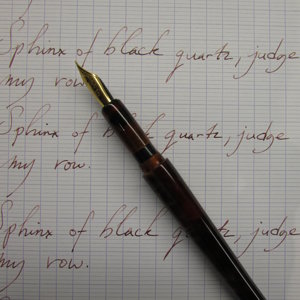 Sphinx of black quartz, judge
my row.
Sphinx of black quartz, judge
my row.
Sphinx of black quartz, judge
my row.